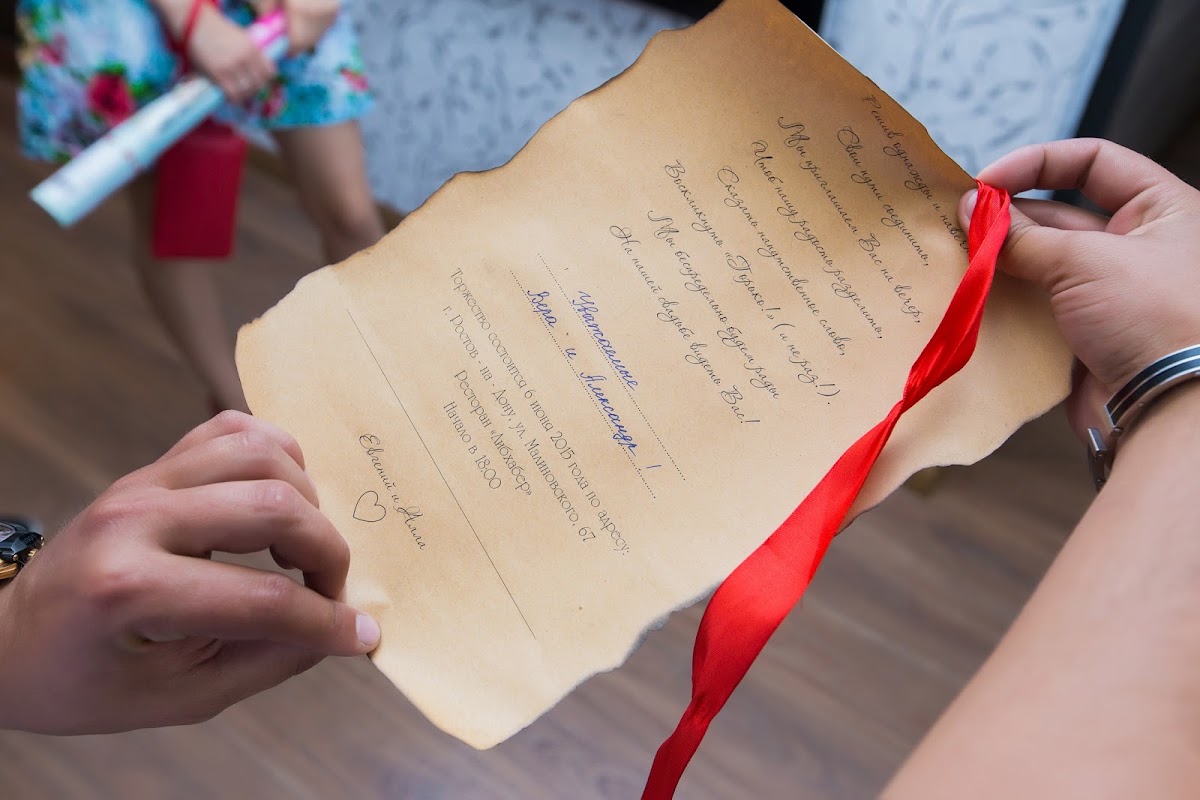 Решив однажды и навсегда
Свои пути соединить,
Мы приглашаем Вас на вечер,
Чтоб нашу радость разделить,
Сказать напутственное слово,
Воскликнуть «Горько!» (и не раз!).
Мы беспредельно будем рады
На нашей свадьбе видеть Вас!
Уважаемые
Вера и Александр !
Торжество состоится 6 июня 2015 года по адресу:
г. Ростов - на - Дону, ул. Малиновского, 67
Ресторан «Либхабер»
Начало в 18:00
Евгений и Алла